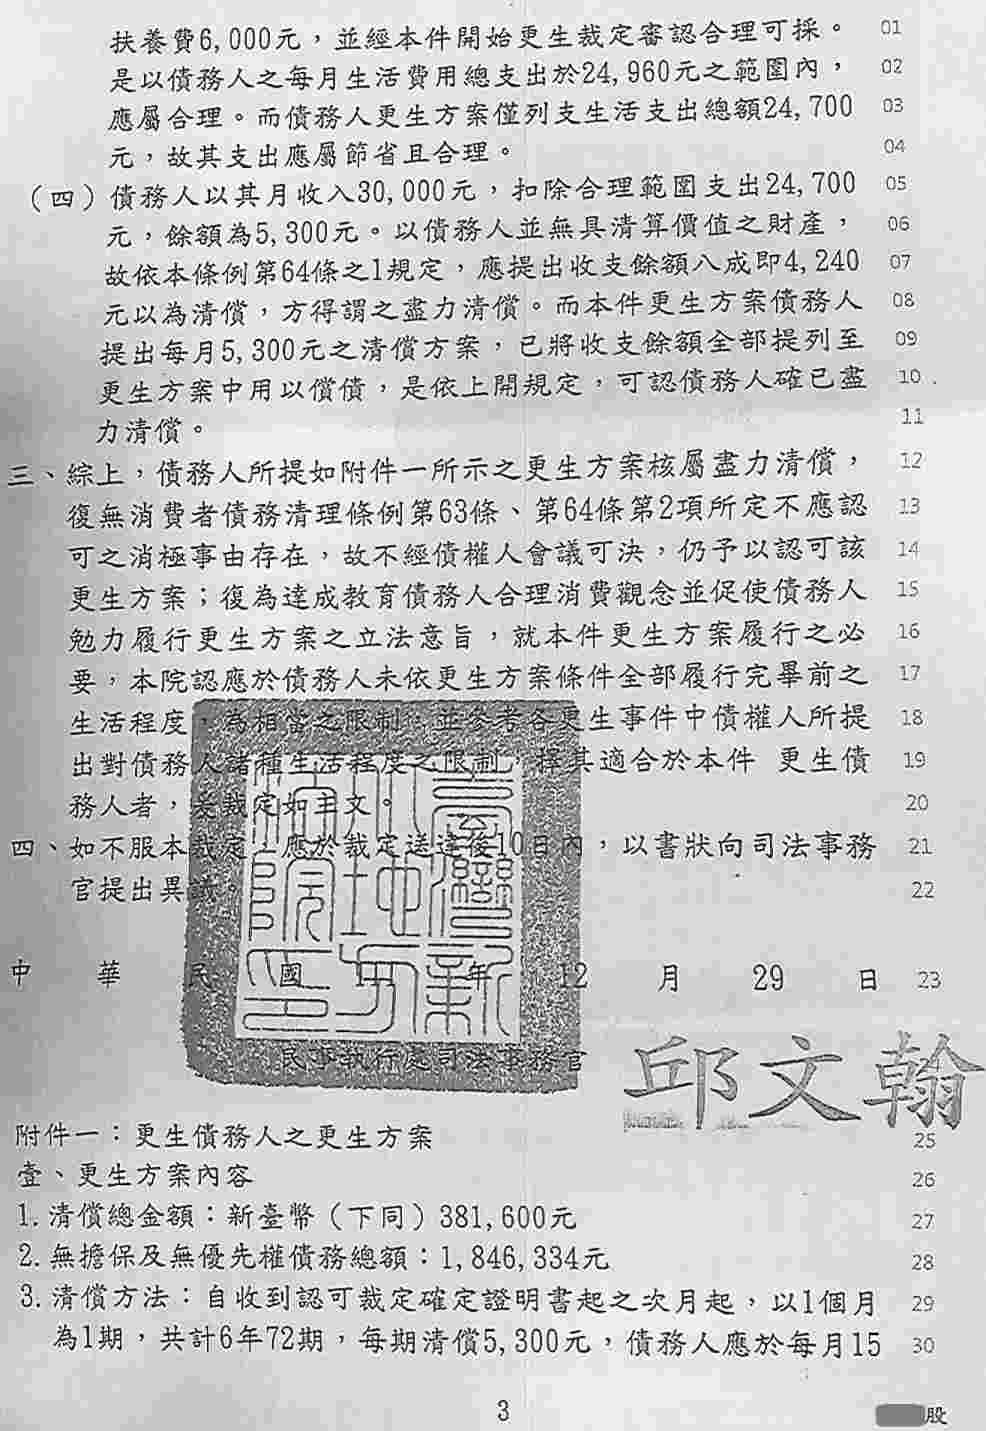 扶養費6,000元，並經本件開始更生裁定審認合理可採。 01
是以債務人之每月生活費用總支出於24,960元之範圍內， 02
應屬合理。而債務人更生方案僅列支生活支出總額24,700 03
元，故其支出應屬節省且合理。 04
（四）債務人以其月收入30,000元，扣除合理範圍支出24,700 05
元，餘額為5,300元。以債務人並無具清算價值之財產， 06
故依本條例第64條之1規定，應提出收支餘額八成即4,240 07
元以為清償，方得謂之盡力清償。而本件更生方案債務人 08
提出每月5,300元之清償方案，已將收支餘額全部提列至 09
更生方案中用以償債，是依上開規定，可認債務人確已盡 10
力清償。 11
三、綜上，債務人所提如附件一所示之更生方案核屬盡力清償， 12
復無消費者債務清理條例第63條、第64條第2項所定不應認 13
可之消極事由存在，故不經債權人會議可決，仍予以認可該 14
更生方案；復為達成教育債務人合理消費觀念並促使債務人 15
勉力履行更生方案之立法意旨，就本件更生方案履行之必 16
要，本院認應於債務人未依更生方案條件全部履行完畢前之 17
生活程度，為相當之限制，並參考各更生事件中債權人所提 18
出對債務人諸種生活程度之限制，擇其適合於本件 更生債 19
務人者，爰裁定如主文。 20
四、如不服本裁定，應於裁定送達後10日內，以書狀向司法事務 21
官提出異議。 22
中 華 民 國 年 12 月 29 日 23
民事執行處司法事務官 邱文翰
臺灣新北地方法院印
附件一：更生債務人之更生方案 25
壹、更生方案內容 26
1.清償總金額：新臺幣（下同）381,600元 27
2.無擔保及無優先權債務總額：1,846,334元 28
3.清償方法：自收到認可裁定確定證明書起之次月起，以1個月 29
為1期，共計6年72期，每期清償5,300元，債務人應於每月15 30
3
股